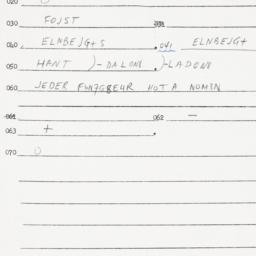 020
030 FOJST 031
040 ELNBEJGTS 041 ELNBEJGT
050 HANT )-DALONS )-LADONS
060 JEDER HOT A NOMEN
061 062 —
063 +
070 O